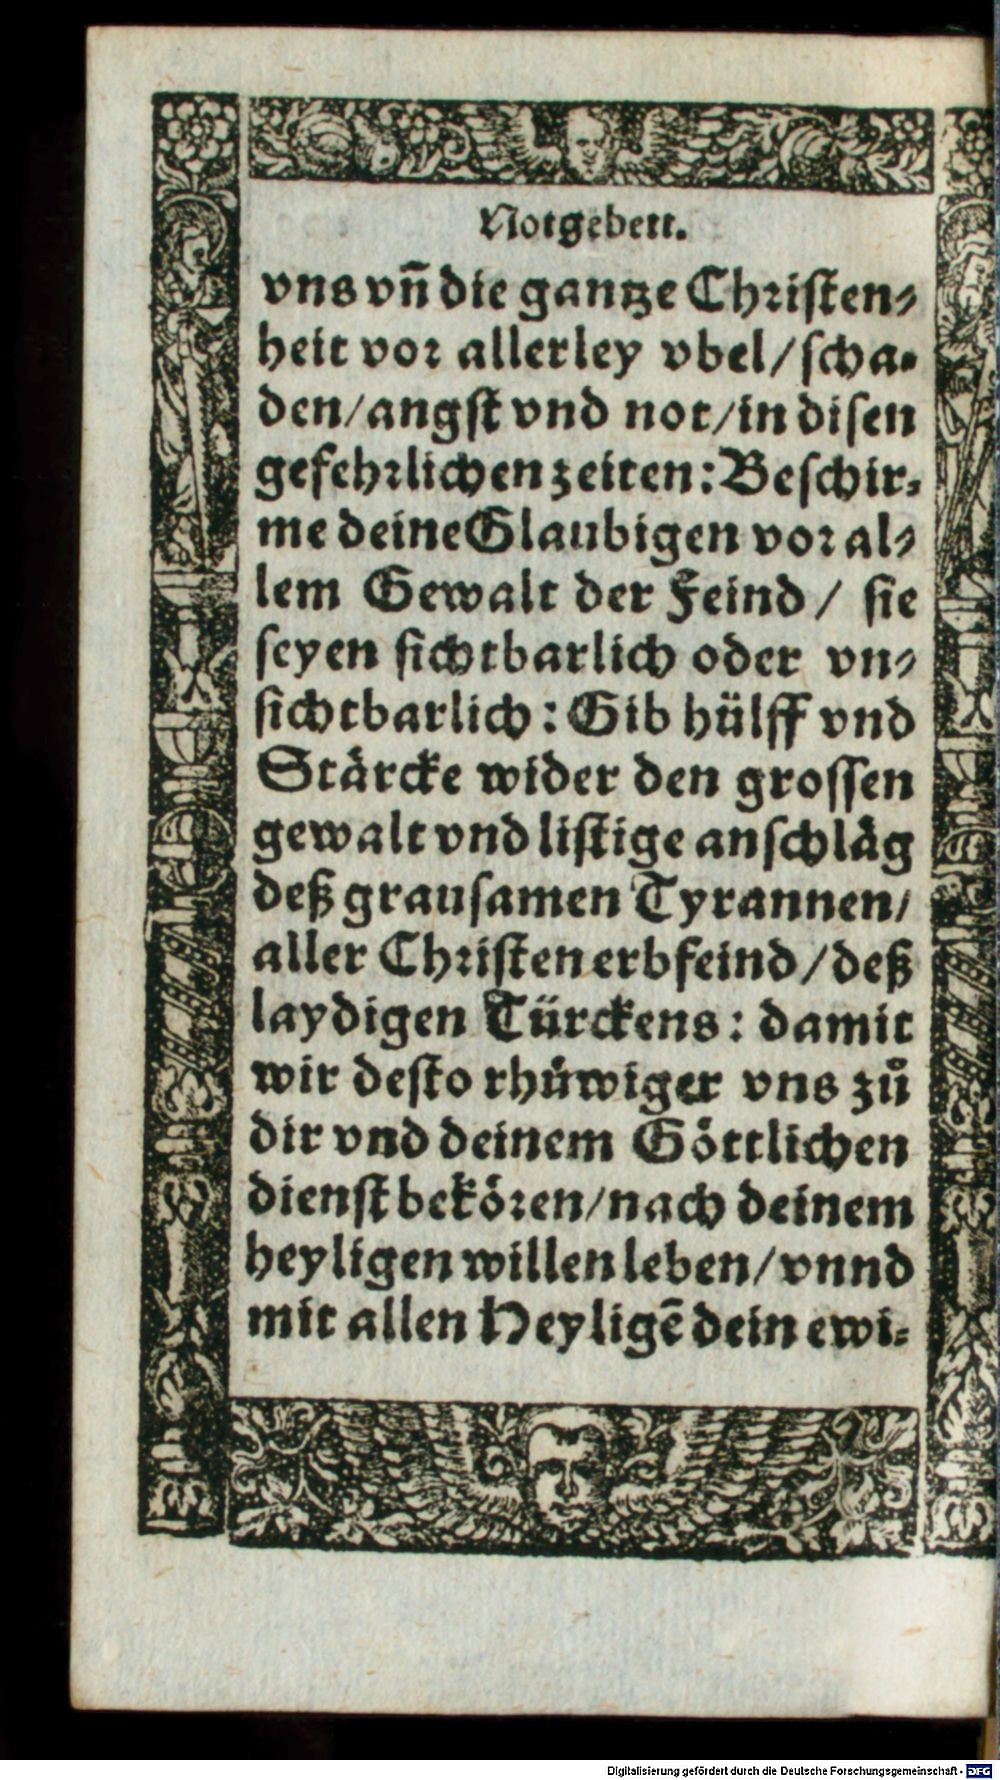 Notgebett.
vns vn̄ die gantze Christen⸗
heit vor allerley vbel/ scha⸗
den/ angst vnd not/ in disen
gefehrlichen zeiten: Beschir⸗
me deine Glaubigen vor al⸗
lem Gewalt der Feind / sie
seyen sichtbarlich oder vn⸗
sichtbarlich: Gib hülff vnd
Stärcke wider den grossen
gewalt vnd listige anschläg
deß grausamen Tyrannen/
aller Christen erbfeind/ deß
laydigen Türckens: damit
wir desto rhüwiger vns zů
dir vnd deinem Göttlichen
dienst bekören/ nach deinem
heyligen willen leben/ vnnd
mit allen Heyligē dein ewi⸗
Digitalisierung gefördert durch die Deutsche Forschungsgemeinschaft - DFG